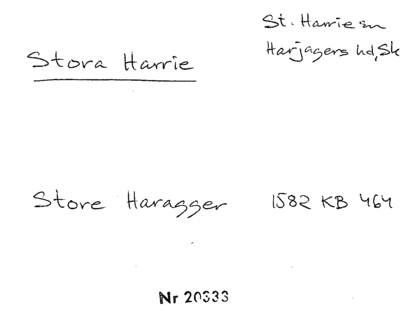 St. Harrie sn
Stora Harrie
Harjagers hd, Sk
Store Haragger 1582 KB 464
Nr 20333